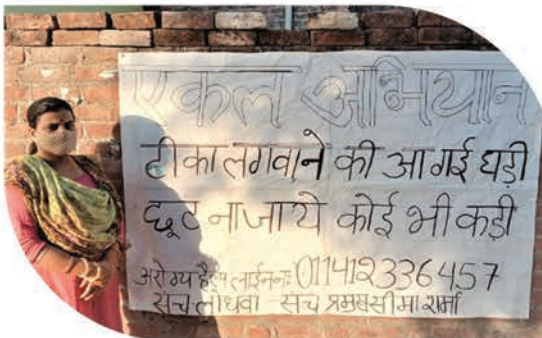 एकल अभियान
टीका लगवाने की आ गई घड़ी
छूट ना जाये कोई भी कड़ी
अरोग्य हैल्प लाईन नः 011412336457
संच लाधवा संच प्रमुख सीमा शर्मा